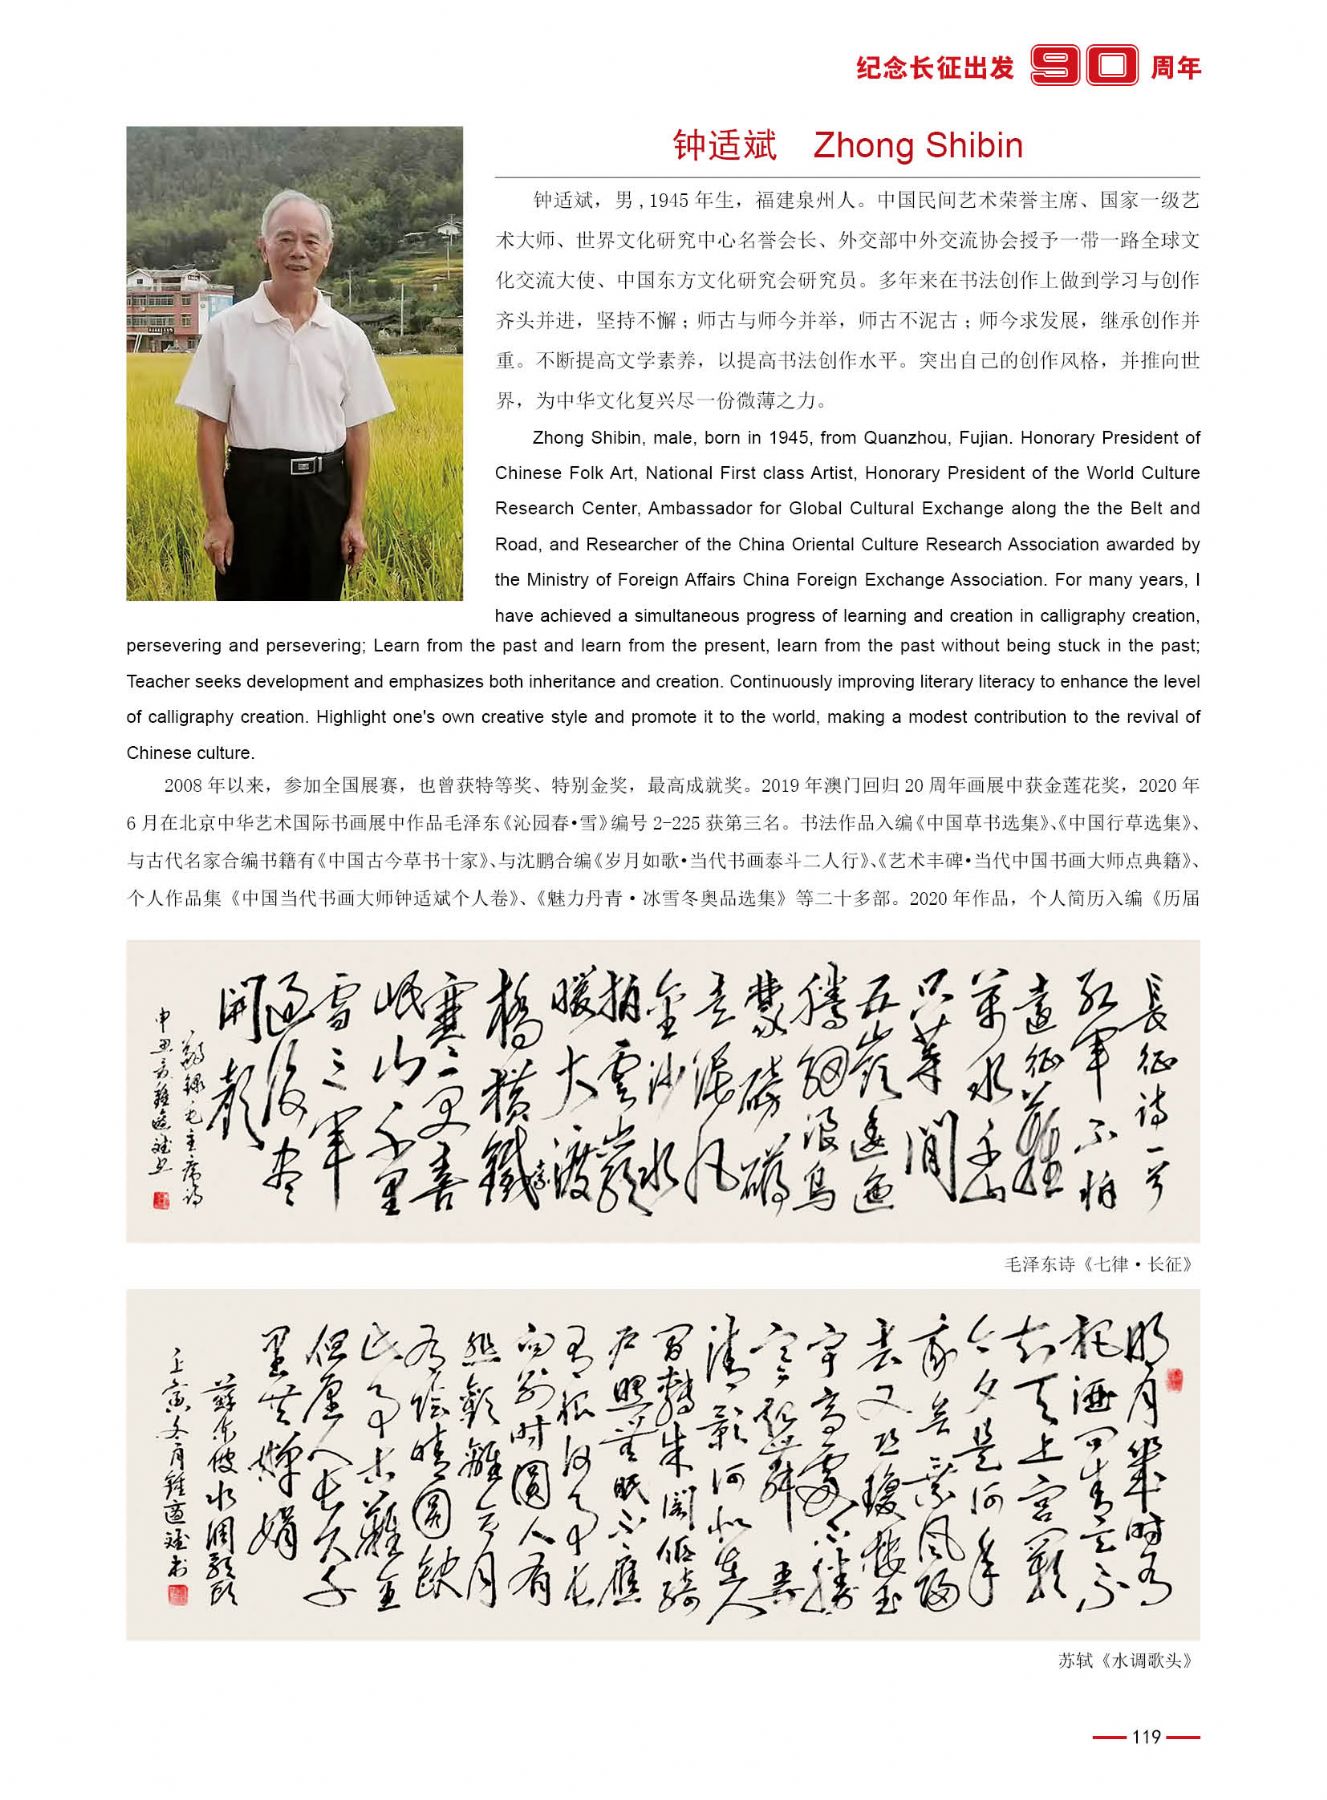 纪念长征出发90周年
钟适斌 Zhong Shibin
钟适斌，男 , 1945 年生，福建泉州人。中国民间艺术荣誉主席、国家一级艺
术大师、世界文化研究中心名誉会长、外交部中外交流协会授予一带一路全球文
化交流大使、中国东方文化研究会研究员。多年来在书法创作上做到学习与创作
齐头并进，坚持不懈；师古与师今并举，师古不泥古；师今求发展，继承创作并
重。不断提高文学素养，以提高书法创作水平。突出自己的创作风格，并推向世
界，为中华文化复兴尽一份微薄之力。
Zhong Shibin, male, born in 1945, from Quanzhou, Fujian. Honorary President of
Chinese Folk Art, National First class Artist, Honorary President of the World Culture
Research Center, Ambassador for Global Cultural Exchange along the the Belt and
Road, and Researcher of the China Oriental Culture Research Association awarded by
the Ministry of Foreign Affairs China Foreign Exchange Association. For many years, I
have achieved a simultaneous progress of learning and creation in calligraphy creation,
persevering and persevering; Learn from the past and learn from the present, learn from the past without being stuck in the past;
Teacher seeks development and emphasizes both inheritance and creation. Continuously improving literary literacy to enhance the level
of calligraphy creation. Highlight one's own creative style and promote it to the world, making a modest contribution to the revival of
Chinese culture.
2008 年以来，参加全国展赛，也曾获特等奖、特别金奖，最高成就奖。2019 年澳门回归 20 周年画展中获金莲花奖，2020 年
6 月在北京中华艺术国际书画展中作品毛泽东《沁园春•雪》编号 2-225 获第三名。书法作品入编《中国草书选集》、《中国行草选集》、
与古代名家合编书籍有《中国古今草书十家》、与沈鹏合编《岁月如歌•当代书画泰斗二人行》、《艺术丰碑•当代中国书画大师点典籍》、
个人作品集《中国当代书画大师钟适斌个人卷》、《魅力丹青·冰雪冬奥品选集》等二十多部。2020 年作品，个人简历入编《历届
長征诗一首
紅軍不怕
遠征難
萬水千山
只等閒
五嶺逶迤
騰細浪烏
蒙磅礴
走泥丸
金沙水
拍雲崖
暖大渡
橋橫鐵索
寒更喜
岷山千里
雪三軍
過後盡
開顏
毛主席诗
毛泽东诗《七律·长征》
明月幾時有
把酒問青天不
知天上宮闕
今夕是何年
我欲乘風歸
去又恐瓊樓玉
宇高處不勝
寒起舞弄
清影何似在人
間轉朱閣低綺
户照無眠不應
有恨何事長
向别時圓人有
悲歡離合月
有陰晴圓缺
此事古難全
但願人長久千
里共嬋娟
蘇東坡水调歌頭
壬寅冬月鍾適斌书
苏轼《水调歌头》
119